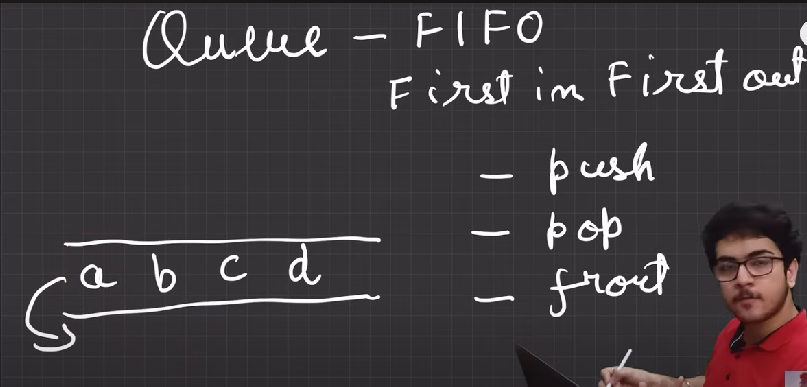 Queue - FIFO
First in First out
- push
- pop
- front
a b c d